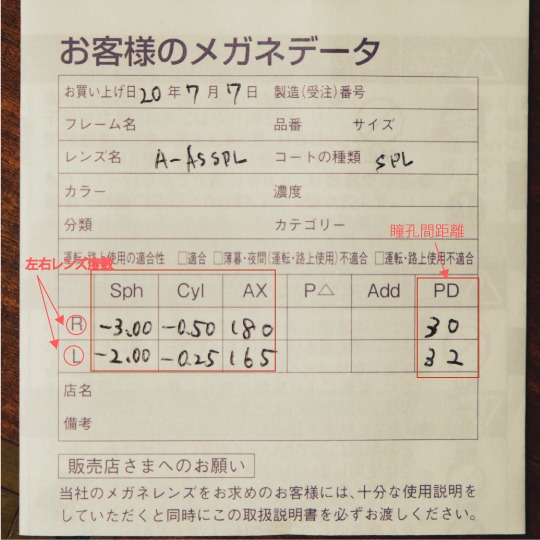 お客様のメガネデータ
お買い上げ日 20 年 7 月 7 日 製造(受注)番号
フレーム名 品番 サイズ
レンズ名 A-ASSPL コートの種類 SPL
カラー 濃度
分類 カテゴリー
瞳孔間距離
運転・路上使用の適合性 □適合 □薄暮・夜間(運転・路上使用)不適合 □運転・路上使用不適合
左右レンズ度数
Sph Cyl AX P△ Add PD
R -3.00 -0.50 180 30
L -2.00 -0.25 165 32
店名
備考
販売店さまへのお願い
当社のメガネレンズをお求めのお客様には、十分な使用説明を
していただくと同時にこの取扱説明書を必ずお渡しください。